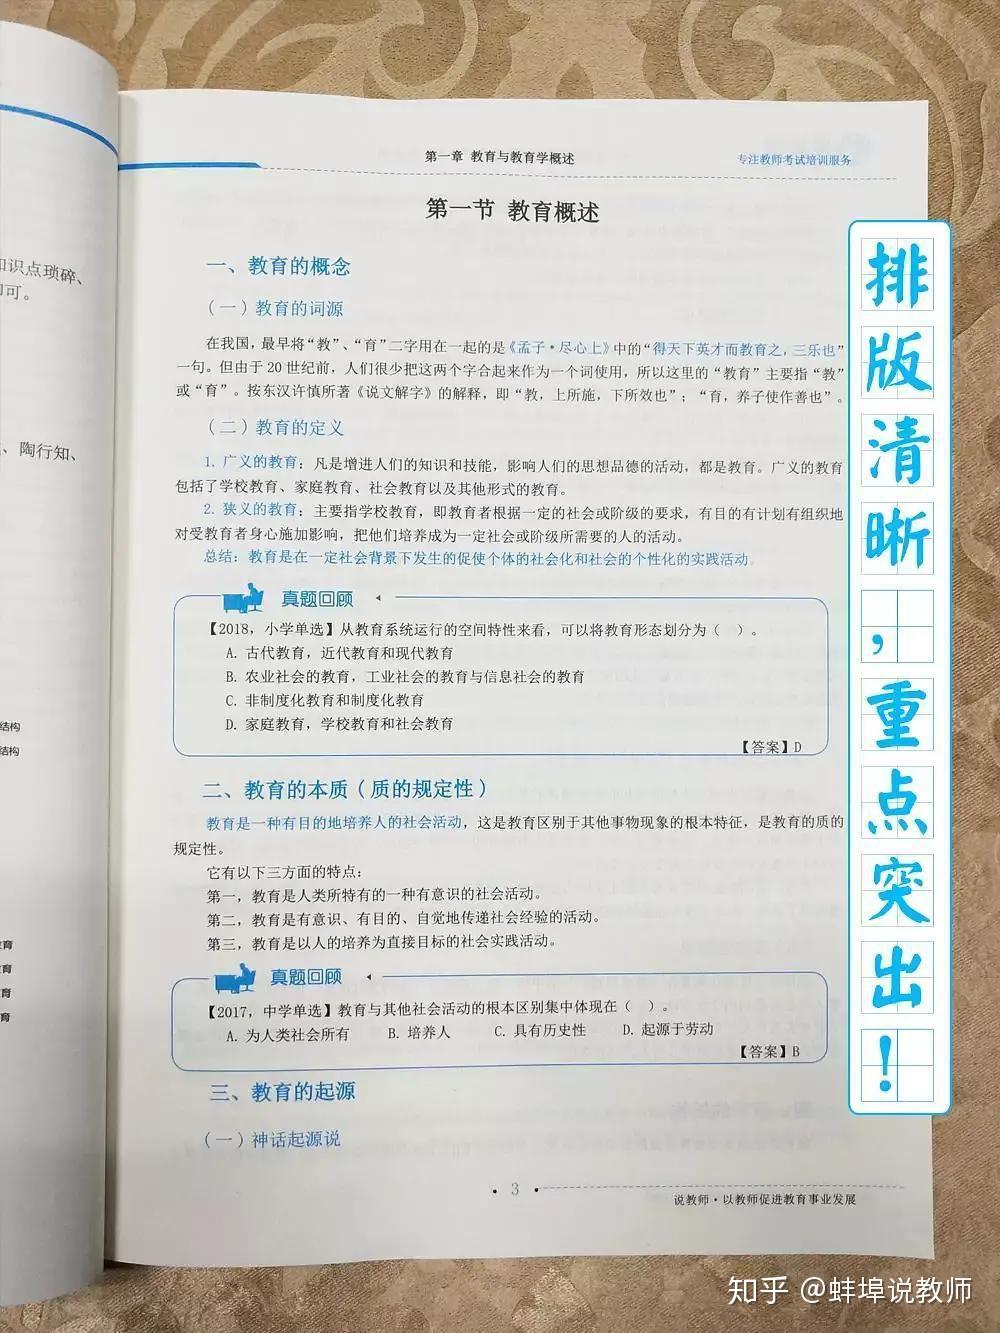 知识点琐碎、
即可。
、陶行知、
结构
结构
教育
教育
育
育
第一章 教育与教育学概述
专注教师考试培训服务
第一节 教育概述
一、教育的概念
（一）教育的词源
在我国，最早将“教”、“育”二字用在一起的是《孟子·尽心上》中的“得天下英才而教育之，三乐也”
一句。但由于 20 世纪前，人们很少把这两个字合起来作为一个词使用，所以这里的“教育”主要指“教”
或“育”。按东汉许慎所著《说文解字》的解释，即“教，上所施，下所效也”；“育，养子使作善也”。
（二）教育的定义
1. 广义的教育：凡是增进人们的知识和技能，影响人们的思想品德的活动，都是教育。广义的教育
包括了学校教育、家庭教育、社会教育以及其他形式的教育。
2. 狭义的教育：主要指学校教育，即教育者根据一定的社会或阶级的要求，有目的有计划有组织地
对受教育者身心施加影响，把他们培养成为一定社会或阶级所需要的人的活动。
总结：教育是在一定社会背景下发生的促使个体的社会化和社会的个性化的实践活动。
真题回顾
【2018，小学单选】从教育系统运行的空间特性来看，可以将教育形态划分为（ ）。
A. 古代教育，近代教育和现代教育
B. 农业社会的教育，工业社会的教育与信息社会的教育
C. 非制度化教育和制度化教育
D. 家庭教育，学校教育和社会教育
【答案】D
二、教育的本质（质的规定性）
教育是一种有目的地培养人的社会活动，这是教育区别于其他事物现象的根本特征，是教育的质的
规定性。
它有以下三方面的特点：
第一，教育是人类所特有的一种有意识的社会活动。
第二，教育是有意识、有目的、自觉地传递社会经验的活动。
第三，教育是以人的培养为直接目标的社会实践活动。
真题回顾
【2017，中学单选】教育与其他社会活动的根本区别集中体现在（ ）。
A. 为人类社会所有 B. 培养人 C. 具有历史性 D. 起源于劳动
【答案】B
三、教育的起源
（一）神话起源说
• 3 •
说教师·以教师促进教育事业发展
排版清晰，重点突出！
知乎 @蚌埠说教师